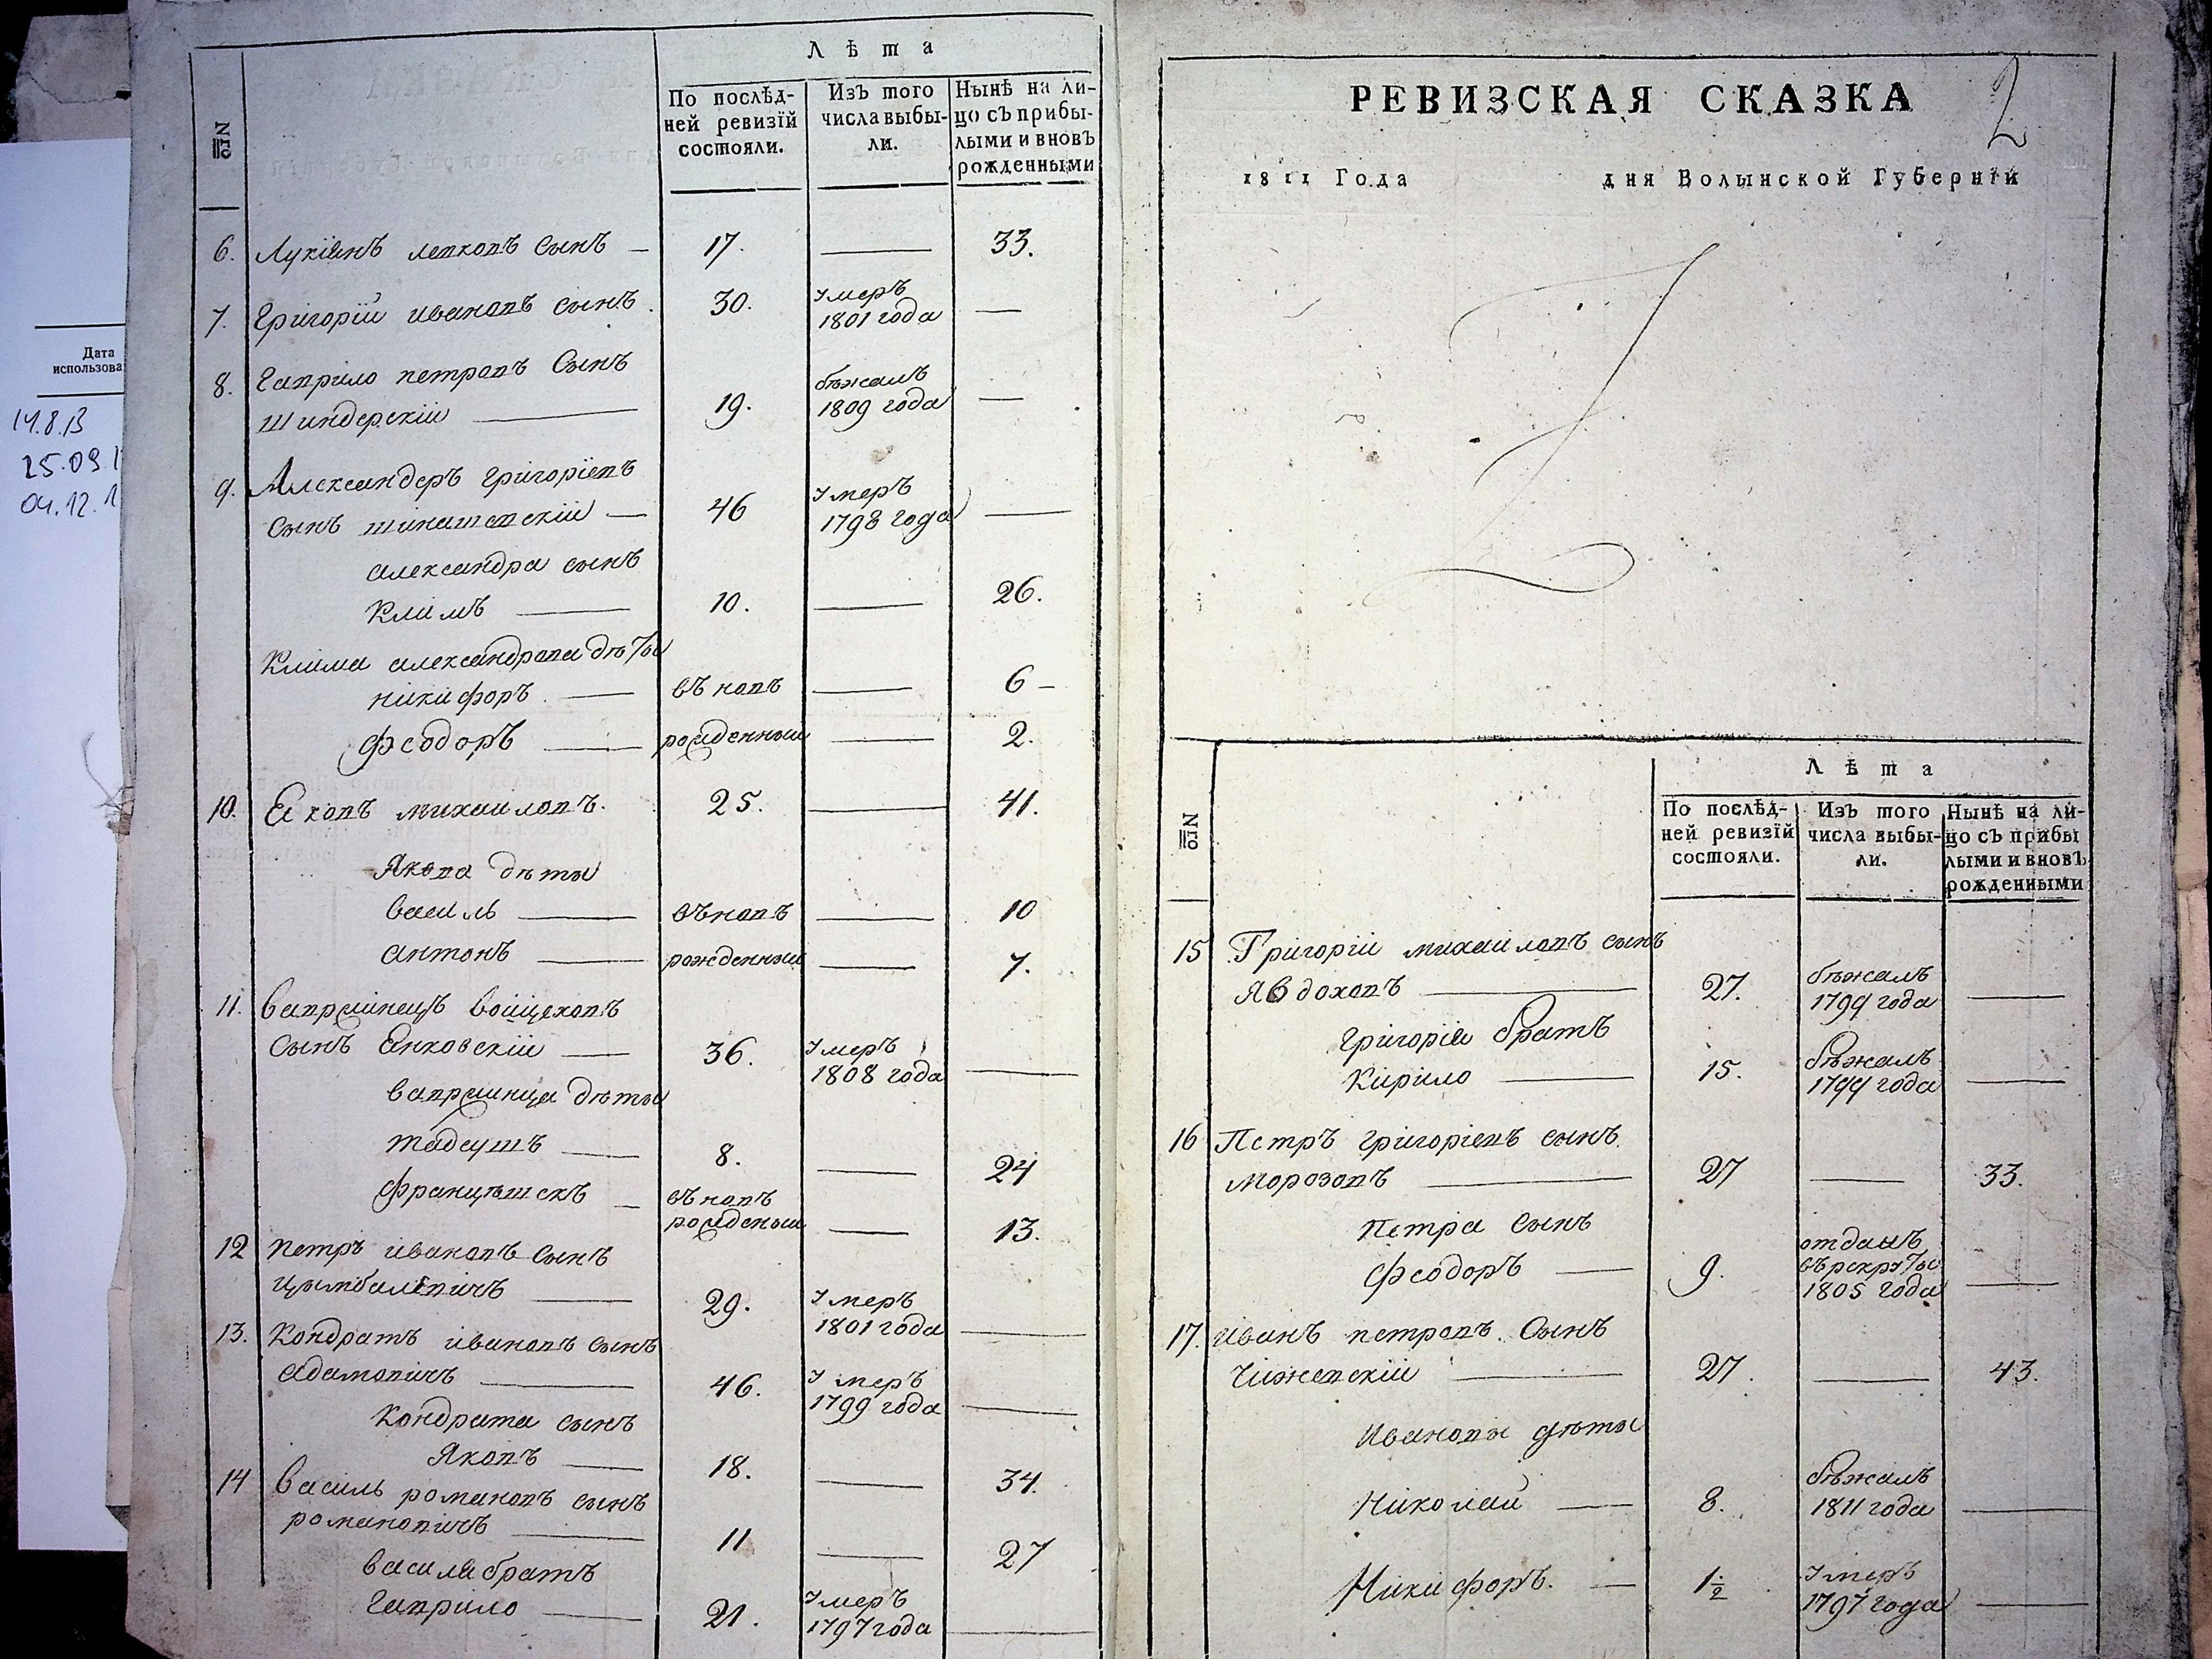 Дата
использова
14.8.13
25.09.1
04.12.1
№го
Лѣта
По послѣд-
ней ревизїй
состояли.
Изъ того
числа выбы-
ли.
Нынѣ на ли-
цо съ прибы-
лыми и вновь
рожденными
6. Лукіянъ левковъ сынъ — 17. — 33.
7. Григорій ивановъ сынъ. 30. умеръ
1801 года —
8. Гаврило петровъ Сынъ
шиндерскій — 19. бѣжалъ
1809 года —
9. Александеръ григоріевъ
сынъ — 46 умеръ
1798 года —
александра сынъ
Климъ — 10. — 26.
Клима александрова дѣты
никифоръ — въ новъ — 6 —
Феодоръ — рожденный — 2.
10. Яковъ михаиловъ. 25. — 41.
Якова дѣты
василь — въ новъ — 10
антонъ — рожденный — 7.
11. вавринецъ войцеховъ
сынъ Янковскій — 36. умеръ
1808 года —
вавринца дѣты
тадеушъ — 8. — 24
францѣшекъ — въ новъ
рожденый — 13.
12 петръ ивановъ сынъ
цымбалевичъ — 29. умеръ
1801 года —
13. Кондратъ ивановъ сынъ
адамовичъ — 46. умеръ
1799 года —
Кондрата сынъ
Яковъ — 18. — 34.
14 василь романовъ сынъ
романовичъ — 11 — 27
василя братъ
Гаврило — 21. умеръ
1797 года —
РЕВИЗСКАЯ СКАЗКА
2
1811 Года дня Волынской Губернїи
№го
Лѣта
По послѣд-
ней ревизїй
состояли.
Изъ того
числа выбы-
ли.
Нынѣ на ли-
цо съ прибы
лыми и вновь
рожденными
15 Григорій михаиловъ сынъ
Явдоховъ — 27. бѣжалъ
1799 года —
Григорія братъ
Кирило — 15. бѣжалъ
1799 года —
16 Петръ григоріевъ сынъ
морозовъ — 27 — 33.
Петра сынъ
Феодоръ — 9. отданъ
въ рекруты
1805 года —
17. иванъ петровъ Сынъ
Чижевскій — 27. — 43.
Ивановы дѣты
Николай — 8. бѣжалъ
1811 года —
Никифоръ. — 1½ умеръ
1797 года —